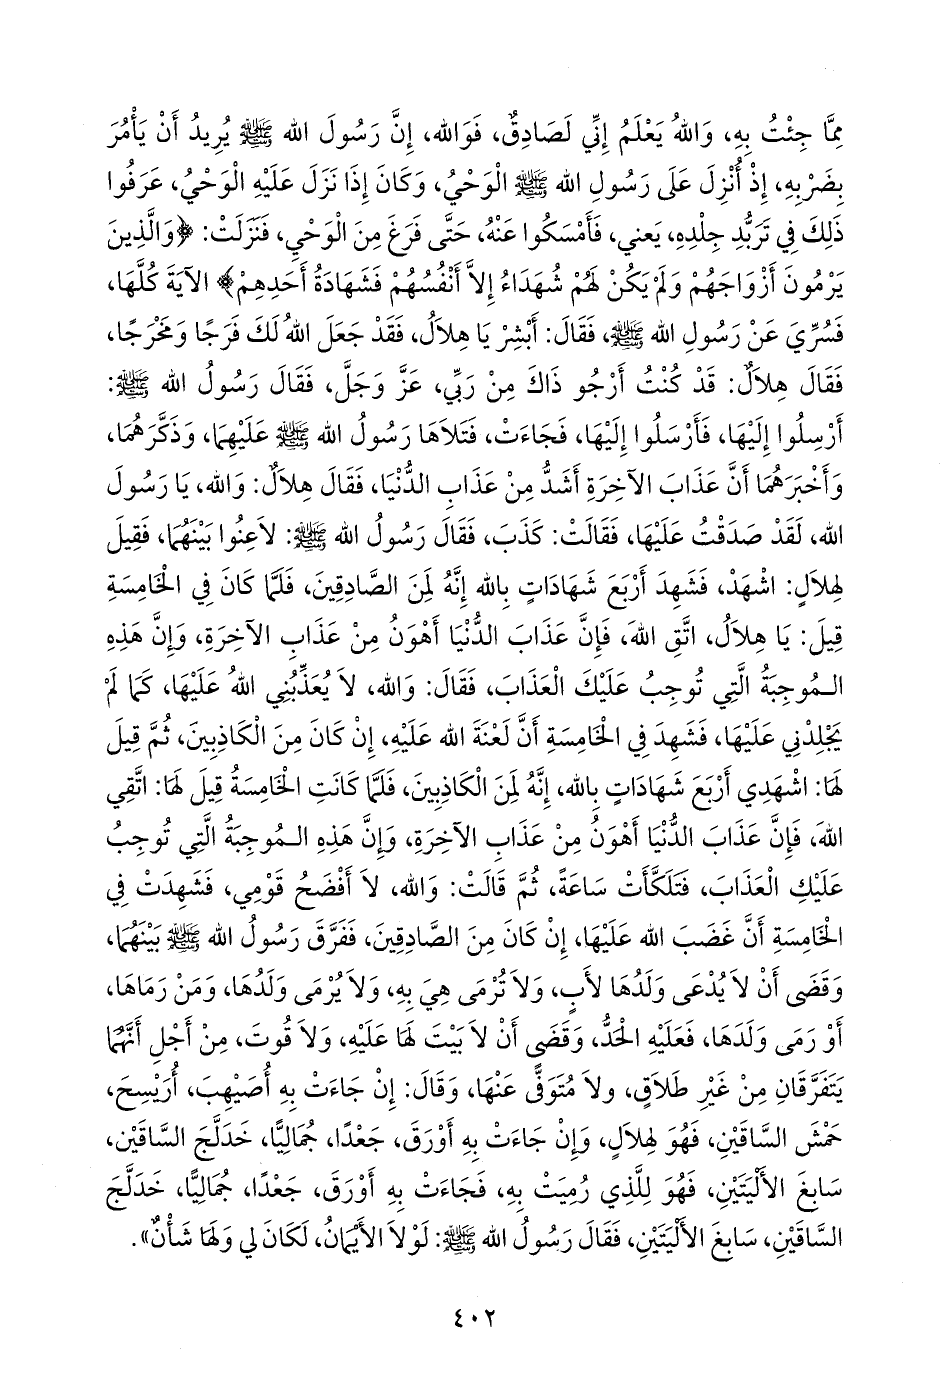 مِمَّا جِئْتُ بِهِ، وَاللهُ يَعْلَمُ إِنِّي لَصَادِقٌ، فَوَالله، إِنَّ رَسُولَ الله ﷺ يُرِيدُ أَنْ يَأْمُرَ
بِضَرْبِهِ، إِذْ أُنْزِلَ عَلَى رَسُولِ الله ﷺ الْوَحْيُ، وَكَانَ إِذَا نَزَلَ عَلَيْهِ الْوَحْيُ، عَرَفُوا
ذَلِكَ فِي تَرَبُّدِ جِلْدِهِ، يَعني، فَأَمْسَكُوا عَنْهُ، حَتَّى فَرَغَ مِنَ الْوَحْيِ، فَنَزَلَتْ: ﴿وَالَّذِينَ
يَرْمُونَ أَزْوَاجَهُمْ وَلَمْ يَكُنْ لَهُمْ شُهَدَاءُ إِلاَّ أَنْفُسُهُمْ فَشَهَادَةُ أَحَدِهِمْ﴾ الآيَةَ كُلَّهَا،
فَسُرِّيَ عَنْ رَسُولِ الله ﷺ، فَقَالَ: أَبْشِرْ يَا هِلاَلُ، فَقَدْ جَعَلَ اللهُ لَكَ فَرَجًا وَمَخْرَجًا،
فَقَالَ هِلاَلٌ: قَدْ كُنْتُ أَرْجُو ذَاكَ مِنْ رَبِّي، عَزَّ وَجَلَّ، فَقَالَ رَسُولُ الله ﷺ:
أَرْسِلُوا إِلَيْهَا، فَأَرْسَلُوا إِلَيْهَا، فَجَاءَتْ، فَتَلاَهَا رَسُولُ الله ﷺ عَلَيْهِمَا، وَذَكَّرَهُمَا،
وَأَخْبَرَهُمَا أَنَّ عَذَابَ الآخِرَةِ أَشَدُّ مِنْ عَذَابِ الدُّنْيَا، فَقَالَ هِلاَلٌ: وَالله، يَا رَسُولَ
الله، لَقَدْ صَدَقْتُ عَلَيْهَا، فَقَالَتْ: كَذَبَ، فَقَالَ رَسُولُ الله ﷺ: لاَعِنُوا بَيْنَهُمَا، فَقِيلَ
لِهِلاَلٍ: اشْهَدْ، فَشَهِدَ أَرْبَعَ شَهَادَاتٍ بِالله إِنَّهُ لَمِنَ الصَّادِقِينَ، فَلَمَّا كَانَ فِي الْخَامِسَةِ
قِيلَ: يَا هِلاَلُ، اتَّقِ اللهَ، فَإِنَّ عَذَابَ الدُّنْيَا أَهْوَنُ مِنْ عَذَابِ الآخِرَةِ، وَإِنَّ هَذِهِ
الْمُوجِبَةُ الَّتِي تُوجِبُ عَلَيْكَ الْعَذَابَ، فَقَالَ: وَالله، لاَ يُعَذِّبُنِي اللهُ عَلَيْهَا، كَمَا لَمْ
يَجْلِدْنِي عَلَيْهَا، فَشَهِدَ فِي الْخَامِسَةِ أَنَّ لَعْنَةَ الله عَلَيْهِ، إِنْ كَانَ مِنَ الْكَاذِبِينَ، ثُمَّ قِيلَ
لَهَا: اشْهَدِي أَرْبَعَ شَهَادَاتٍ بِالله، إِنَّهُ لَمِنَ الْكَاذِبِينَ، فَلَمَّا كَانَتِ الْخَامِسَةُ قِيلَ لَهَا: اتَّقِي
اللهَ، فَإِنَّ عَذَابَ الدُّنْيَا أَهْوَنُ مِنْ عَذَابِ الآخِرَةِ، وَإِنَّ هَذِهِ الْمُوجِبَةُ الَّتِي تُوجِبُ
عَلَيْكِ الْعَذَابَ، فَتَلَكَّأَتْ سَاعَةً، ثُمَّ قَالَتْ: وَالله، لاَ أَفْضَحُ قَوْمِي، فَشَهِدَتْ فِي
الْخَامِسَةِ أَنَّ غَضَبَ الله عَلَيْهَا، إِنْ كَانَ مِنَ الصَّادِقِينَ، فَفَرَّقَ رَسُولُ الله ﷺ بَيْنَهُمَا،
وَقَضَى أَنْ لاَ يُدْعَى وَلَدُهَا لأَبٍ، وَلاَ تُرْمَى هِيَ بِهِ، وَلاَ يُرْمَى وَلَدُهَا، وَمَنْ رَمَاهَا،
أَوْ رَمَى وَلَدَهَا، فَعَلَيْهِ الْحَدُّ، وَقَضَى أَنْ لاَ بَيْتَ لَهَا عَلَيْهِ، وَلاَ قُوتَ، مِنْ أَجْلِ أَنَّهُمَا
يَتَفَرَّقَانِ مِنْ غَيْرِ طَلاَقٍ، ولاَ مُتَوَفًّى عَنْهَا، وَقَالَ: إِنْ جَاءَتْ بِهِ أُصَيْهِبَ، أُرَيْسِحَ،
حَمْشَ السَّاقَيْنِ، فَهُوَ لِهِلاَلٍ، وَإِنْ جَاءَتْ بِهِ أَوْرَقَ، جَعْدًا، جُمَالِيًّا، خَدَلَّجَ السَّاقَيْنِ،
سَابِغَ الأَلْيَتَيْنِ، فَهُوَ لِلَّذِي رُمِيَتْ بِهِ، فَجَاءَتْ بِهِ أَوْرَقَ، جَعْدًا، جُمَالِيًّا، خَدَلَّجَ
السَّاقَيْنِ، سَابِغَ الأَلْيَتَيْنِ، فَقَالَ رَسُولُ الله ﷺ: لَوْلاَ الأَيْمَانُ، لَكَانَ لِي وَلَهَا شَأْنٌ».
٤٠٢